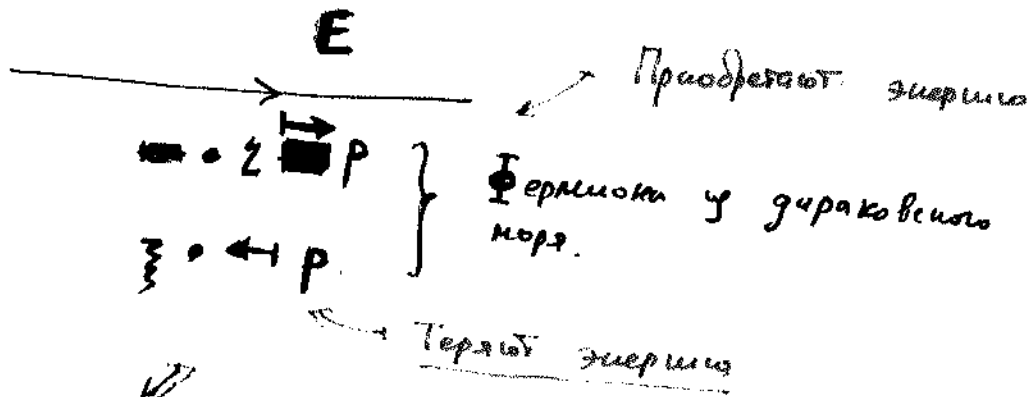 E
Приобретают энергию
P
Фермионы из дираковского
моря.
P
Теряют энергию